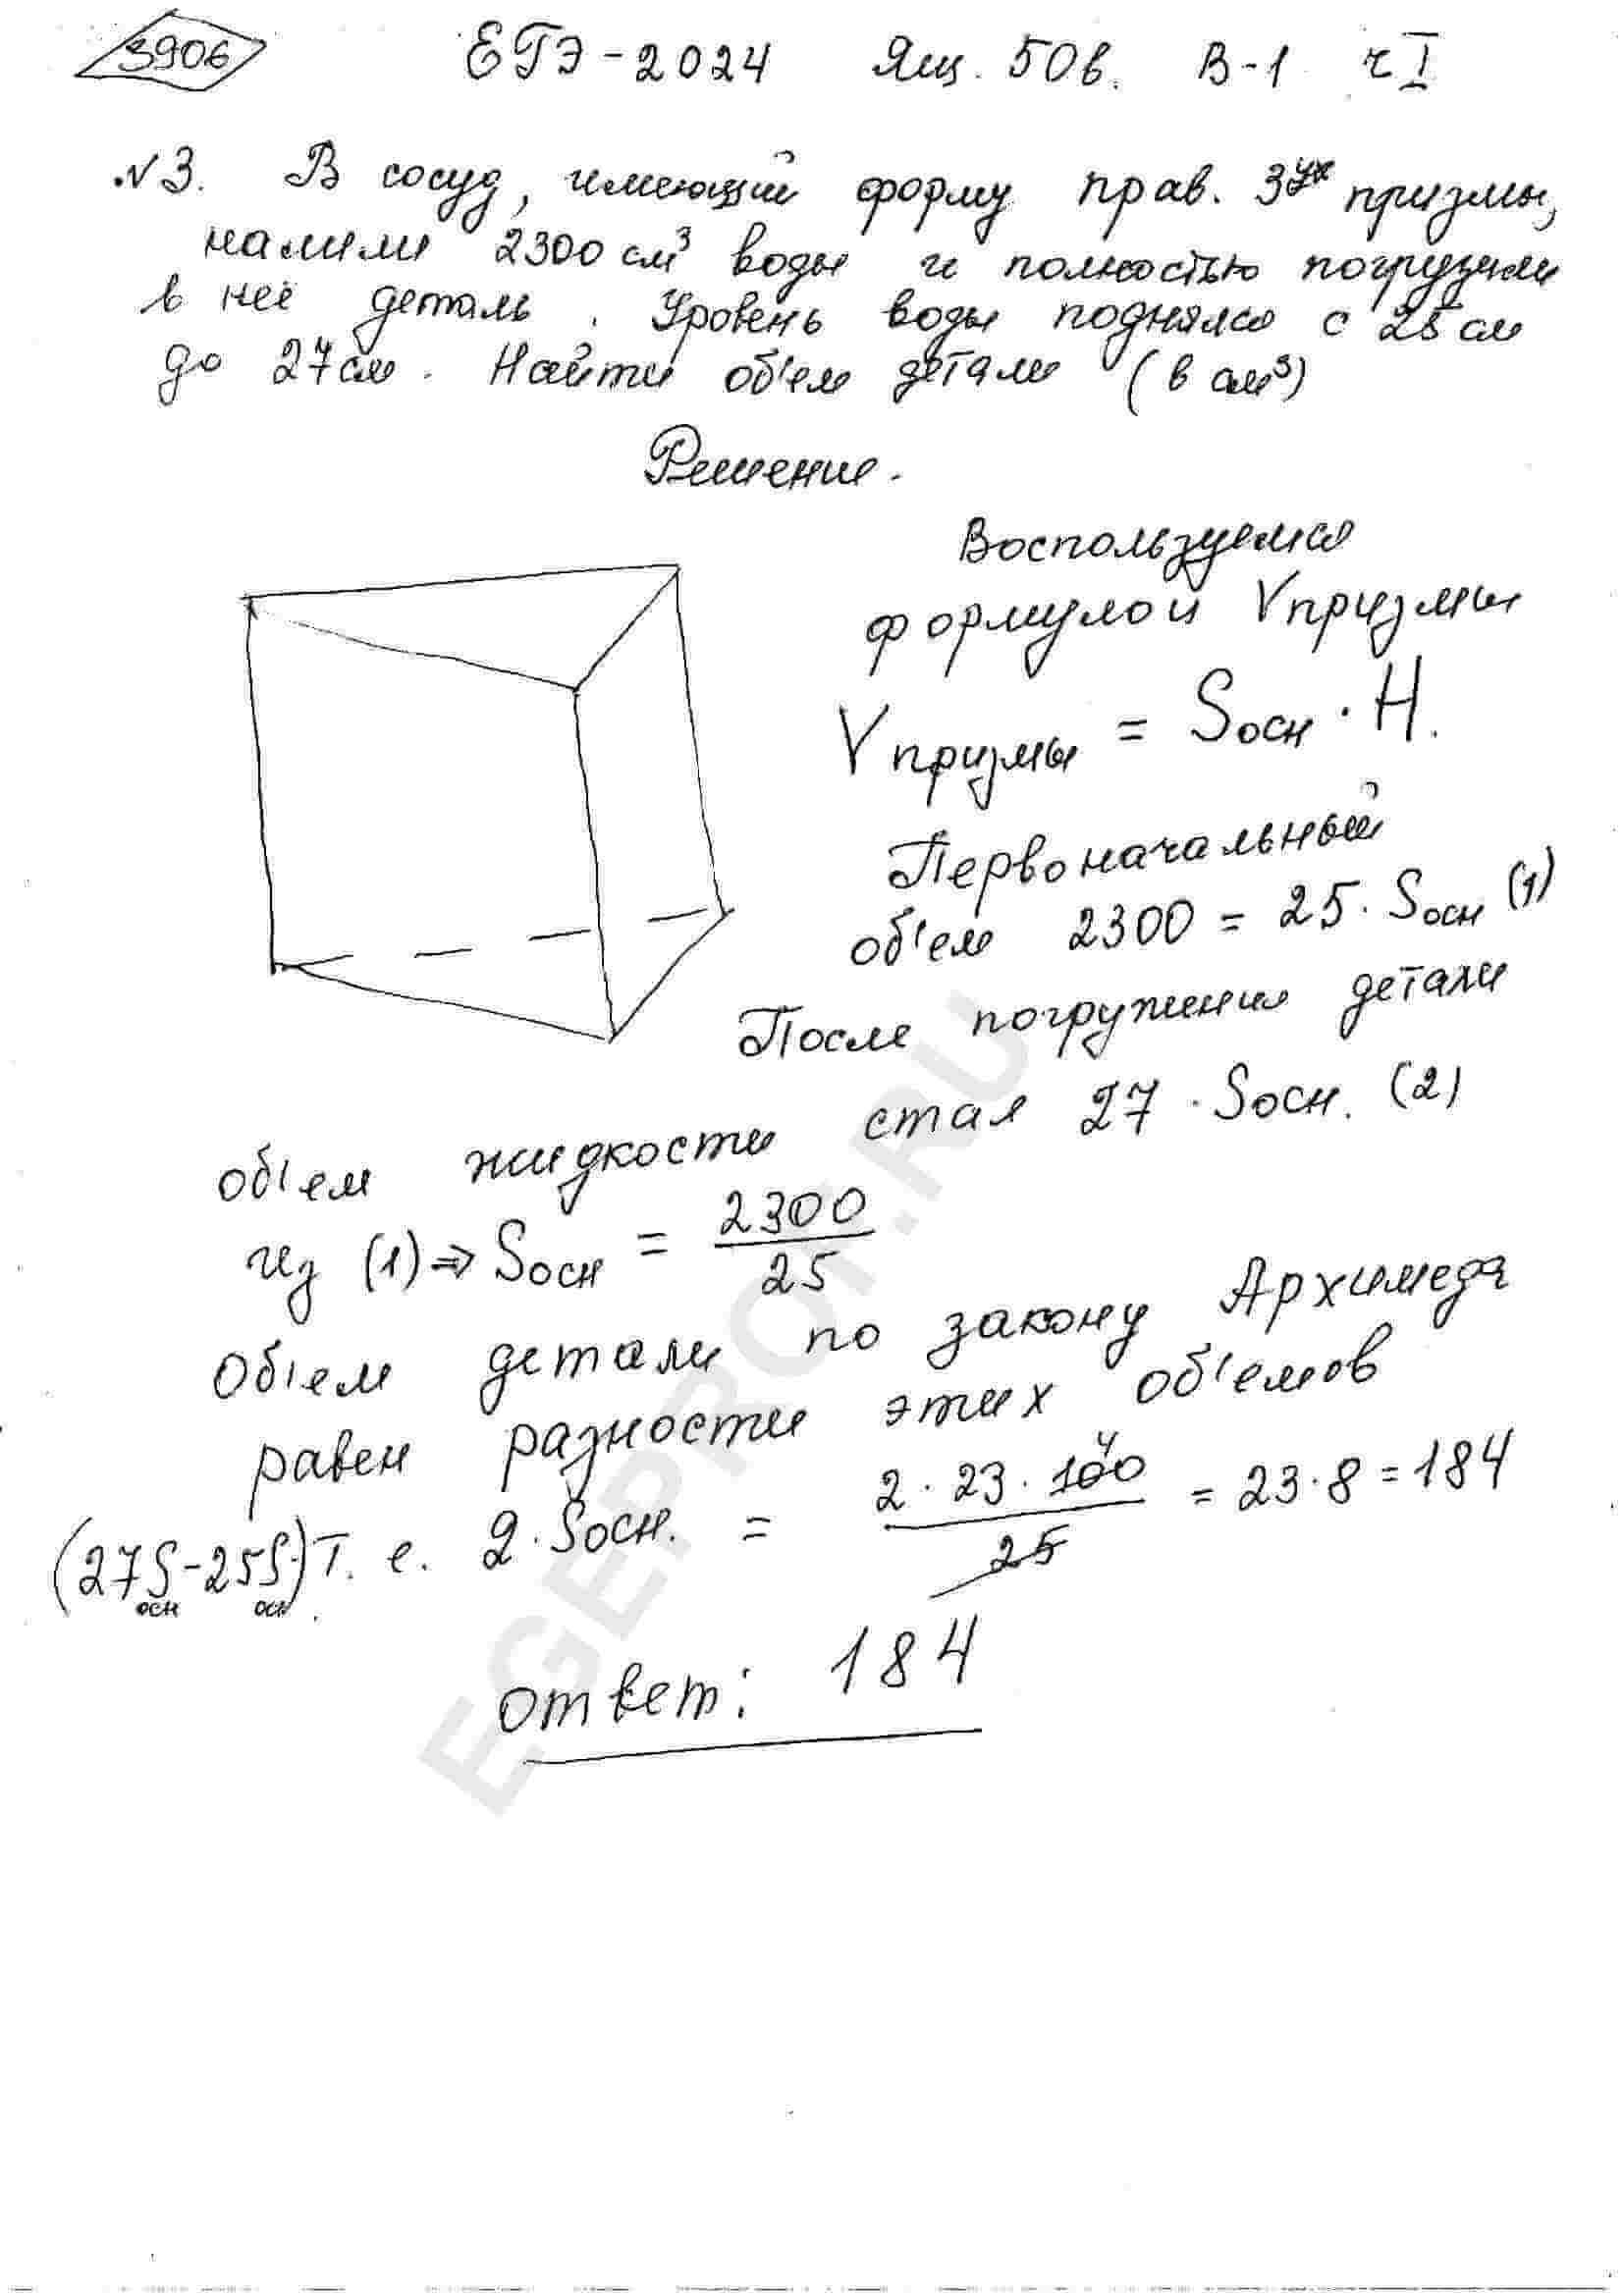 3906 ЕГЭ-2024 Ящ. 50в. В-1 ч I
№3. В сосуд, имеющий форму прав. 3ух призмы,
налили 2300 см³ воды и полностью погрузили
в неё деталь. Уровень воды поднялся с 25 см
до 27 см. Найти об'ем детали (в см³)
Решение.
Воспользуемся
формулой Vпризмы
Vпризмы = Sосн · H.
Первоначальный
об'ем 2300 = 25 · Sосн (1)
После погружения детали
об'ем жидкости стал 27 · Sосн. (2)
Из (1) ⇒ Sосн = 2300/25
Об'ем детали по закону Архимеда
равен разности этих об'емов
(27Sосн - 25Sосн) т. е. 2 · Sосн. = 2 · 23 · 100/25 = 23 · 8 = 184
4
ответ: 184
EGEPROF.RU